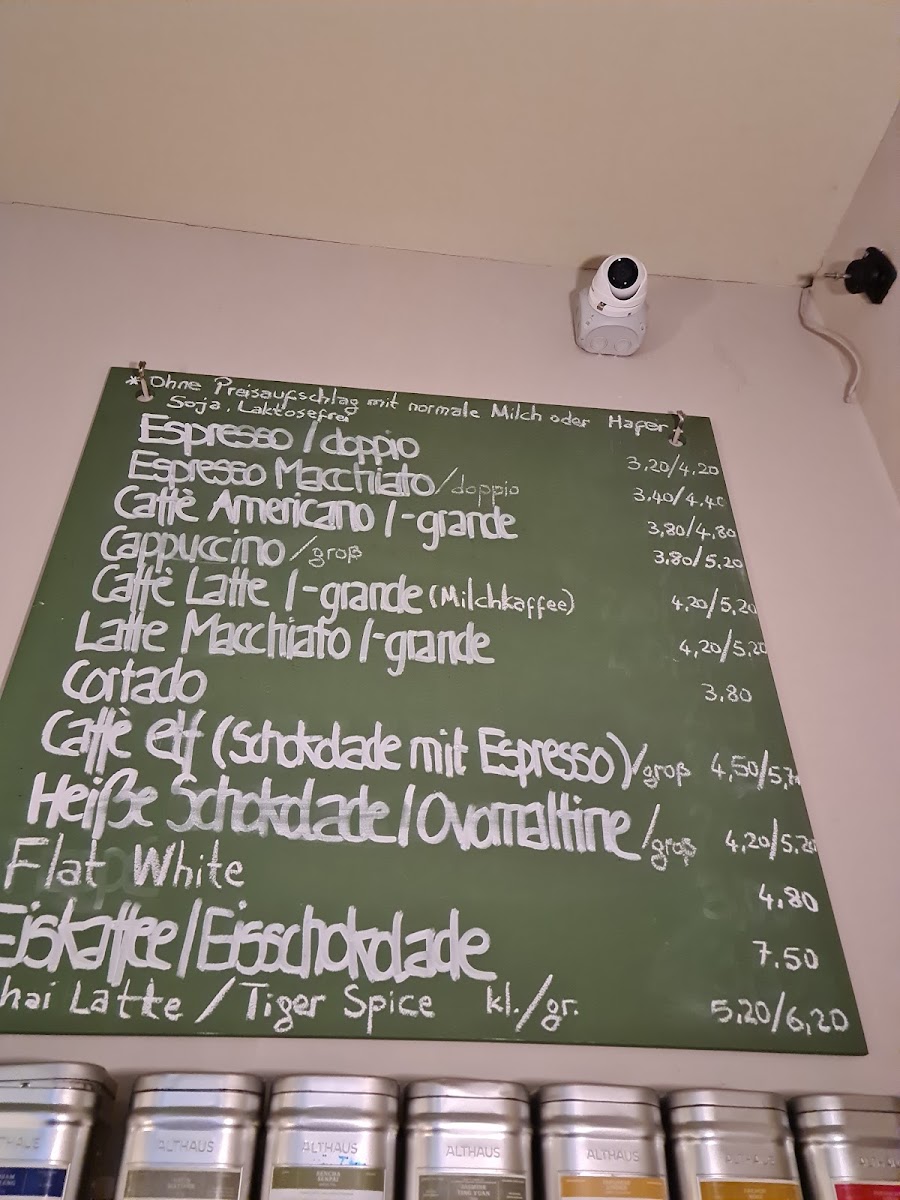 *Ohne Preisaufschlag mit normale Milch oder Hafer,
Soja, Laktosefrei
Espresso / doppio 3,20/4,20
Espresso Macchiato / doppio 3,40/4,40
Caffè Americano / -grande 3,80/4,80
Cappuccino / groß 3,80/5,20
Caffè Latte / -grande (Milchkaffee) 4,20/5,20
Latte Macchiato / -grande 4,20/5,20
Cortado 3.80
Caffè elf (Schokolade mit Espresso) / groß 4,50/5,7
Heiße Schokolade / Ovomaltine / groß 4,20/5,20
Flat White 4,80
Eiskaffee / Eisschokolade 7.50
hai Latte / Tiger Spice kl. / gr. 5,20/6,20
ALTHAUS ALTHAUS ALTHAUS ALTHAUS ALTHAUS